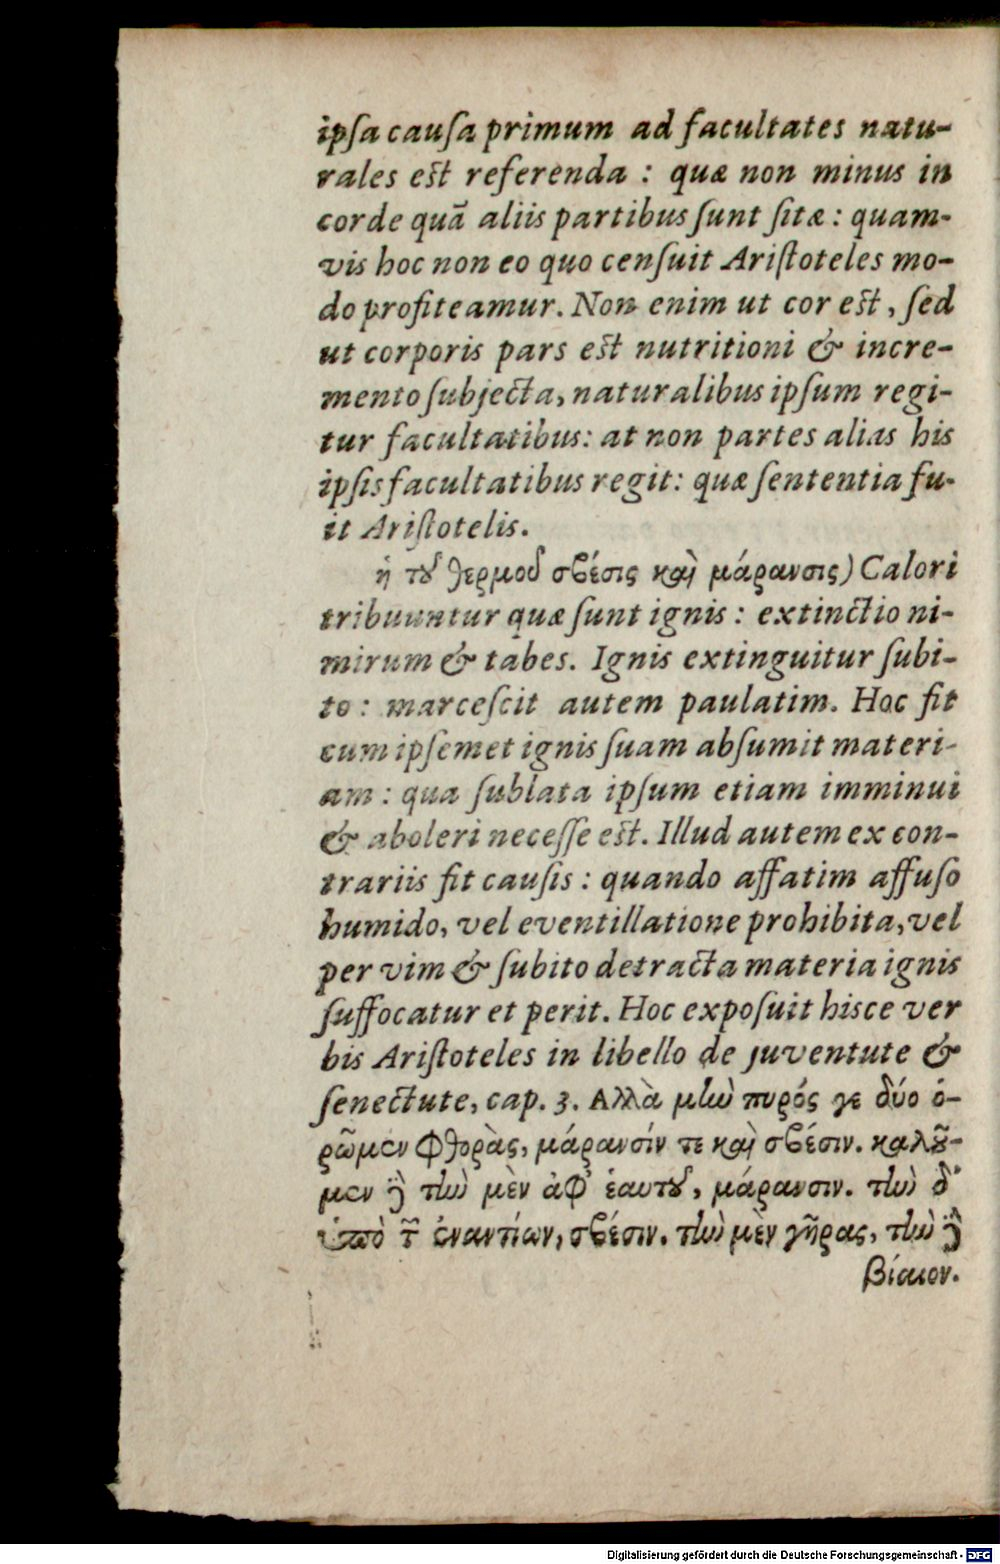 ipſa cauſa primum ad facultates natu-
rales est referenda : quæ non minus in
corde quā aliis partibus ſunt ſitæ : quam-
vis hoc non eo quo cenſuit Ariſtoteles mo-
do profiteamur. Non enim ut cor est, ſed
ut corporis pars est nutritioni & incre-
mento ſubjecta, naturalibus ipſum regi-
tur facultatibus: at non partes alias his
ipſis facultatibus regit: quæ ſententia fu-
it Ariſtotelis.
ἡ τȣ͂ θερμοῦ σβέσις καὶ μάρανσις) Calori
tribuuntur quæ ſunt ignis : extinctio ni-
mirum & tabes. Ignis extinguitur ſubi-
to : marceſcit autem paulatim. Hoc fit
cum ipſemet ignis ſuam abſumit materi-
am : qua ſublata ipſum etiam imminui
& aboleri neceſſe est. Illud autem ex con-
trariis fit cauſis : quando affatim affuſo
humido, vel eventillatione prohibita, vel
per vim & ſubito detracta materia ignis
ſuffocatur et perit. Hoc expoſuit hisce ver
bis Ariſtoteles in libello de juventute &
ſenectute, cap. 3. Αλλὰ μὴν πυρός γε δύο ὁ-
ρῶμεν φθορὰς, μάρανσίν τε καὶ σβέσιν. καλȣ͂-
μεν δὲ τὴν μὲν ἀφ' ἑαυτȣ͂, μάρανσιν. τὴν δ'
ὑπὸ τῶν ἐναντίων, σβέσιν. τὴν μὲν γῆρας, τὴν δὲ
βίαιον.
Digitalisierung gefördert durch die Deutsche Forschungsgemeinschaft - DFG